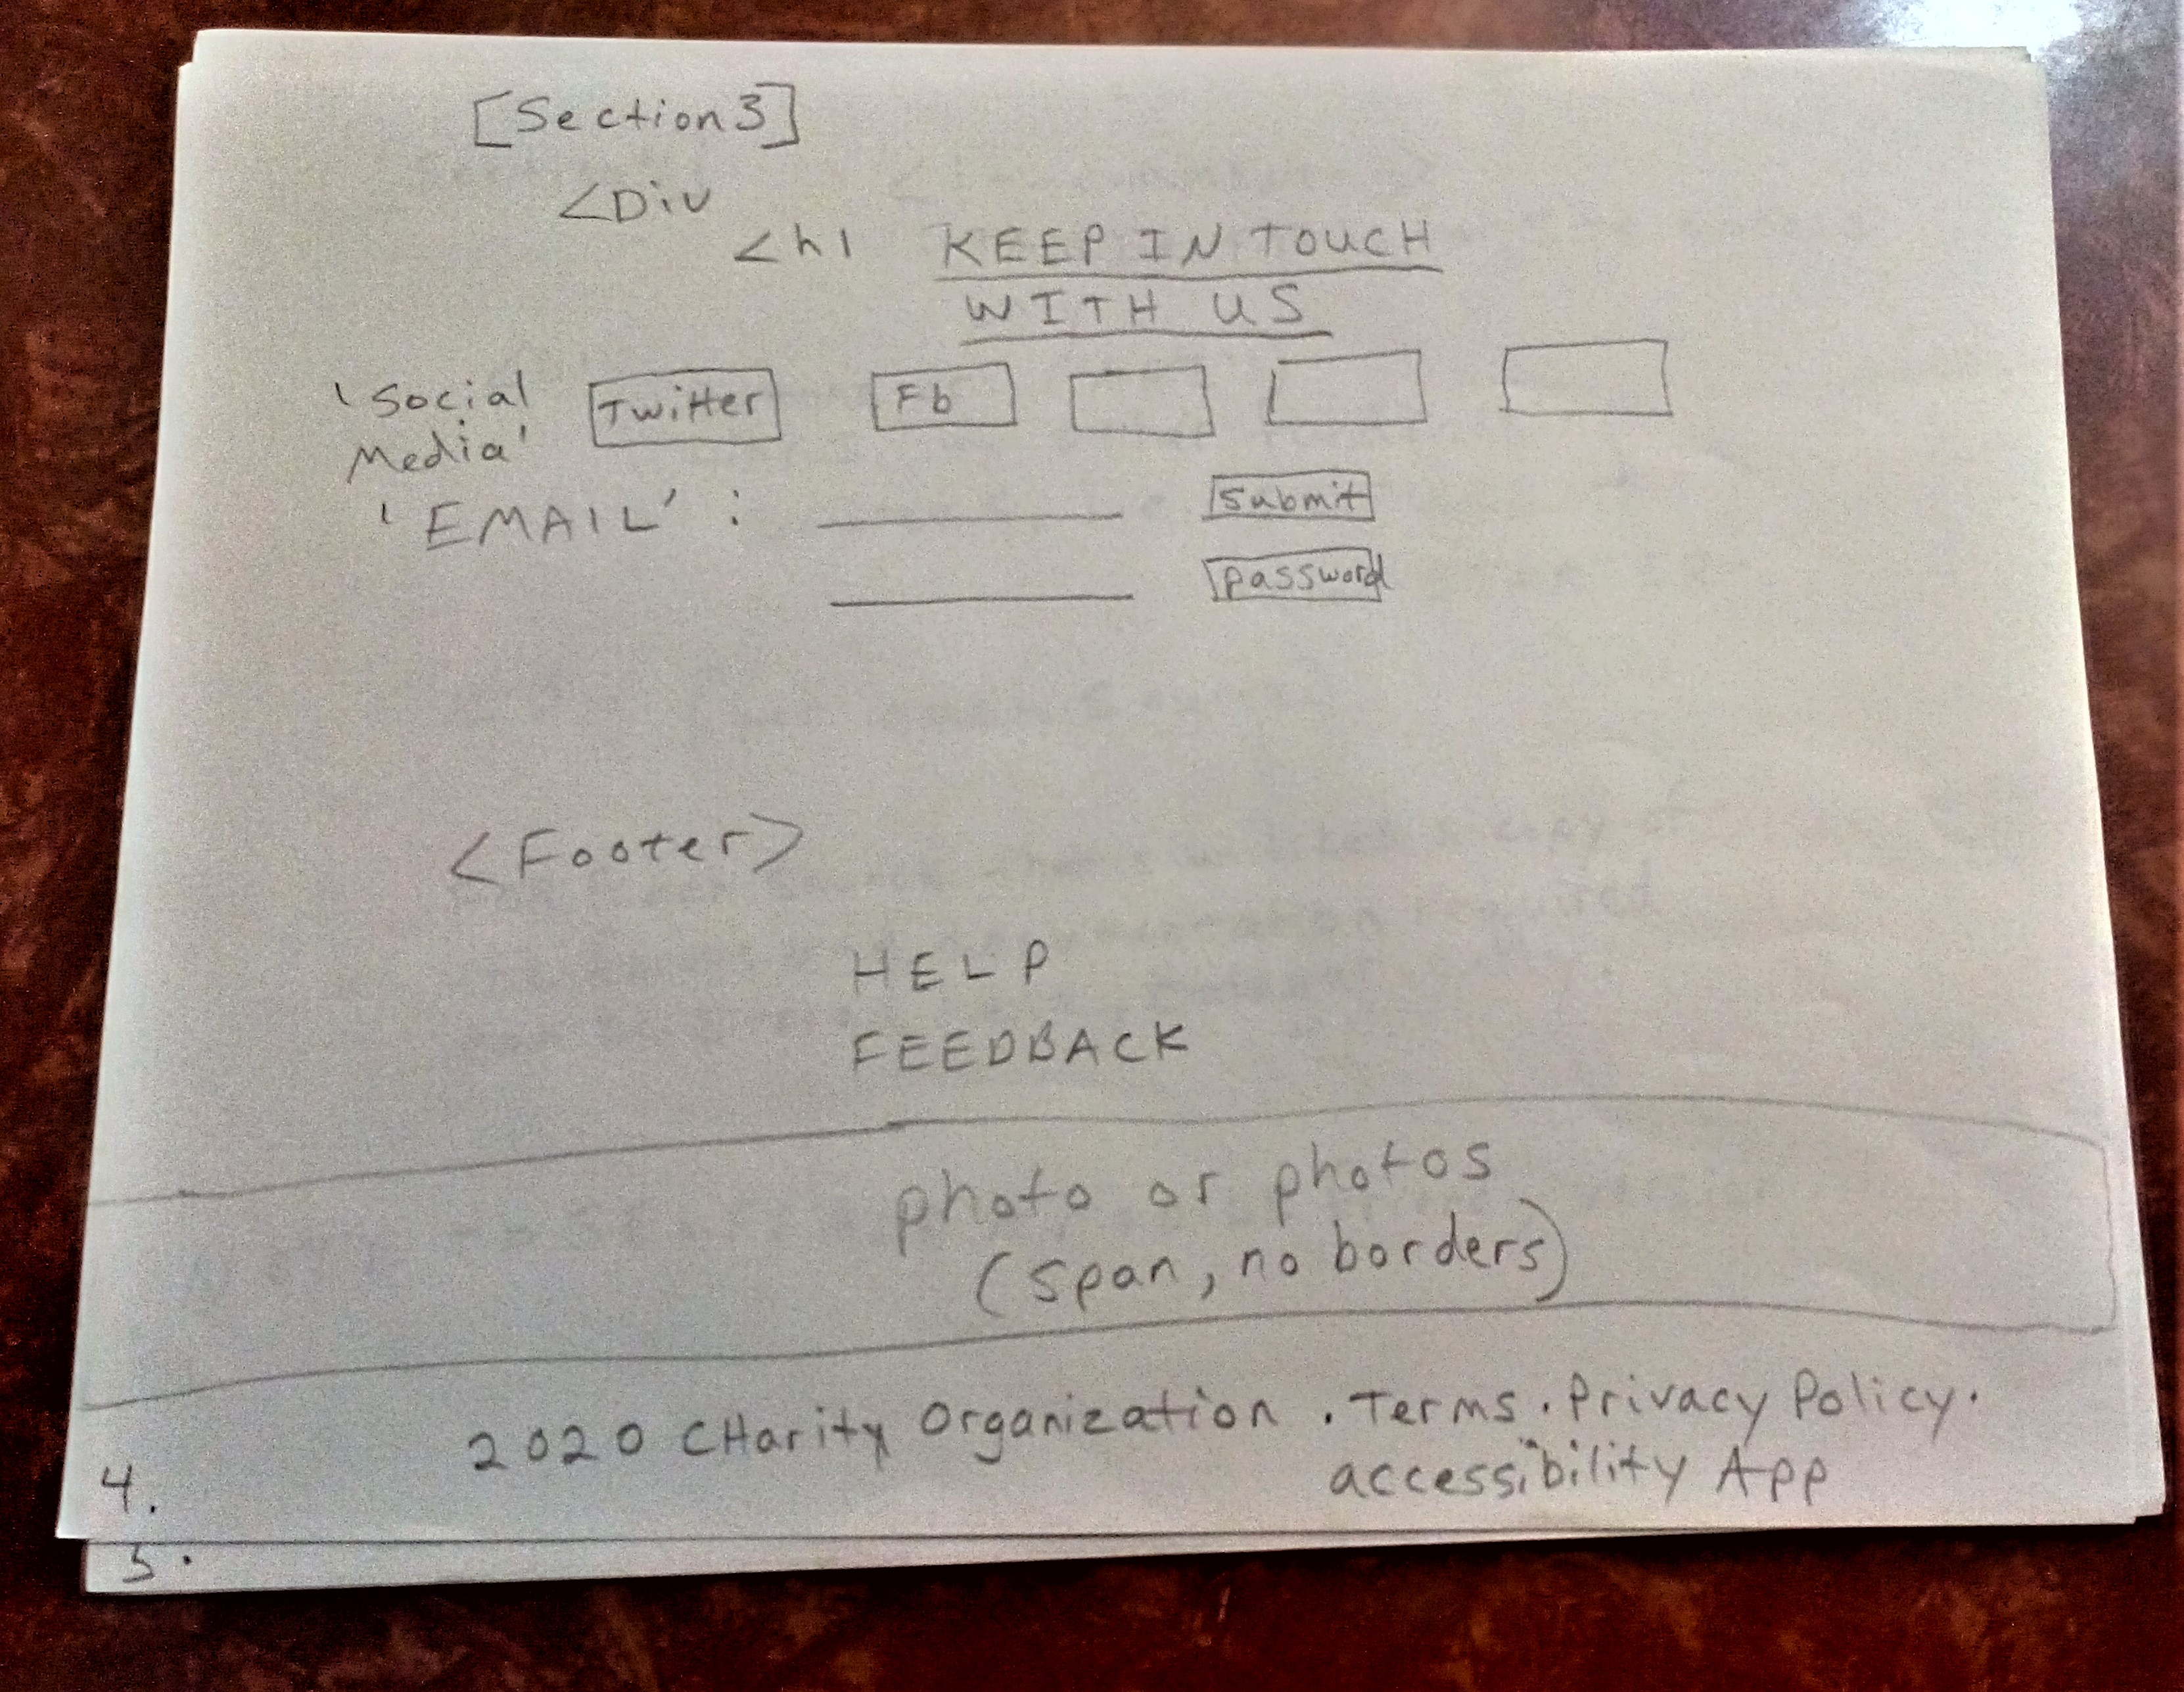 [Section 3]
<Div
<h1 KEEP IN TOUCH
WITH US
'Social
Media'
Twitter
Fb
'EMAIL' :
Submit
password
<Footer>
HELP
FEEDBACK
photo or photos
(span, no borders)
2020 CHarity Organization . Terms . Privacy Policy .
accessibility App
4.
5.